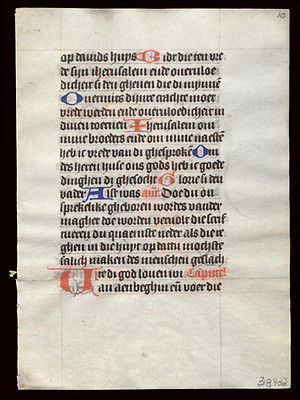 10
op davids huys Bidt die ten vre
de sijn iherusalem ende overvloe
dicheit si den ghenen die di mynnen
Overmits dijnre crachte moet
vrede werden ende overvloedicheit in
dinen toernen Iherusalem om
mine broeders ende om mine naesten
heb ic vrede van di ghesproken Om
des heren huse ons gods heb ic goede
dinghen di ghesocht Glorie si den
vader Alst was an̄. Doe du on
sprekelike gheboren wordes vander
maghet doe worden vervult die scrif
tueren du quaemste neder als die re
ghen in die huyt op dattu mochste
salich maken des menschen geslach
te di god loven wi Capitel
Van aenbeghin en̄ voer die
318932